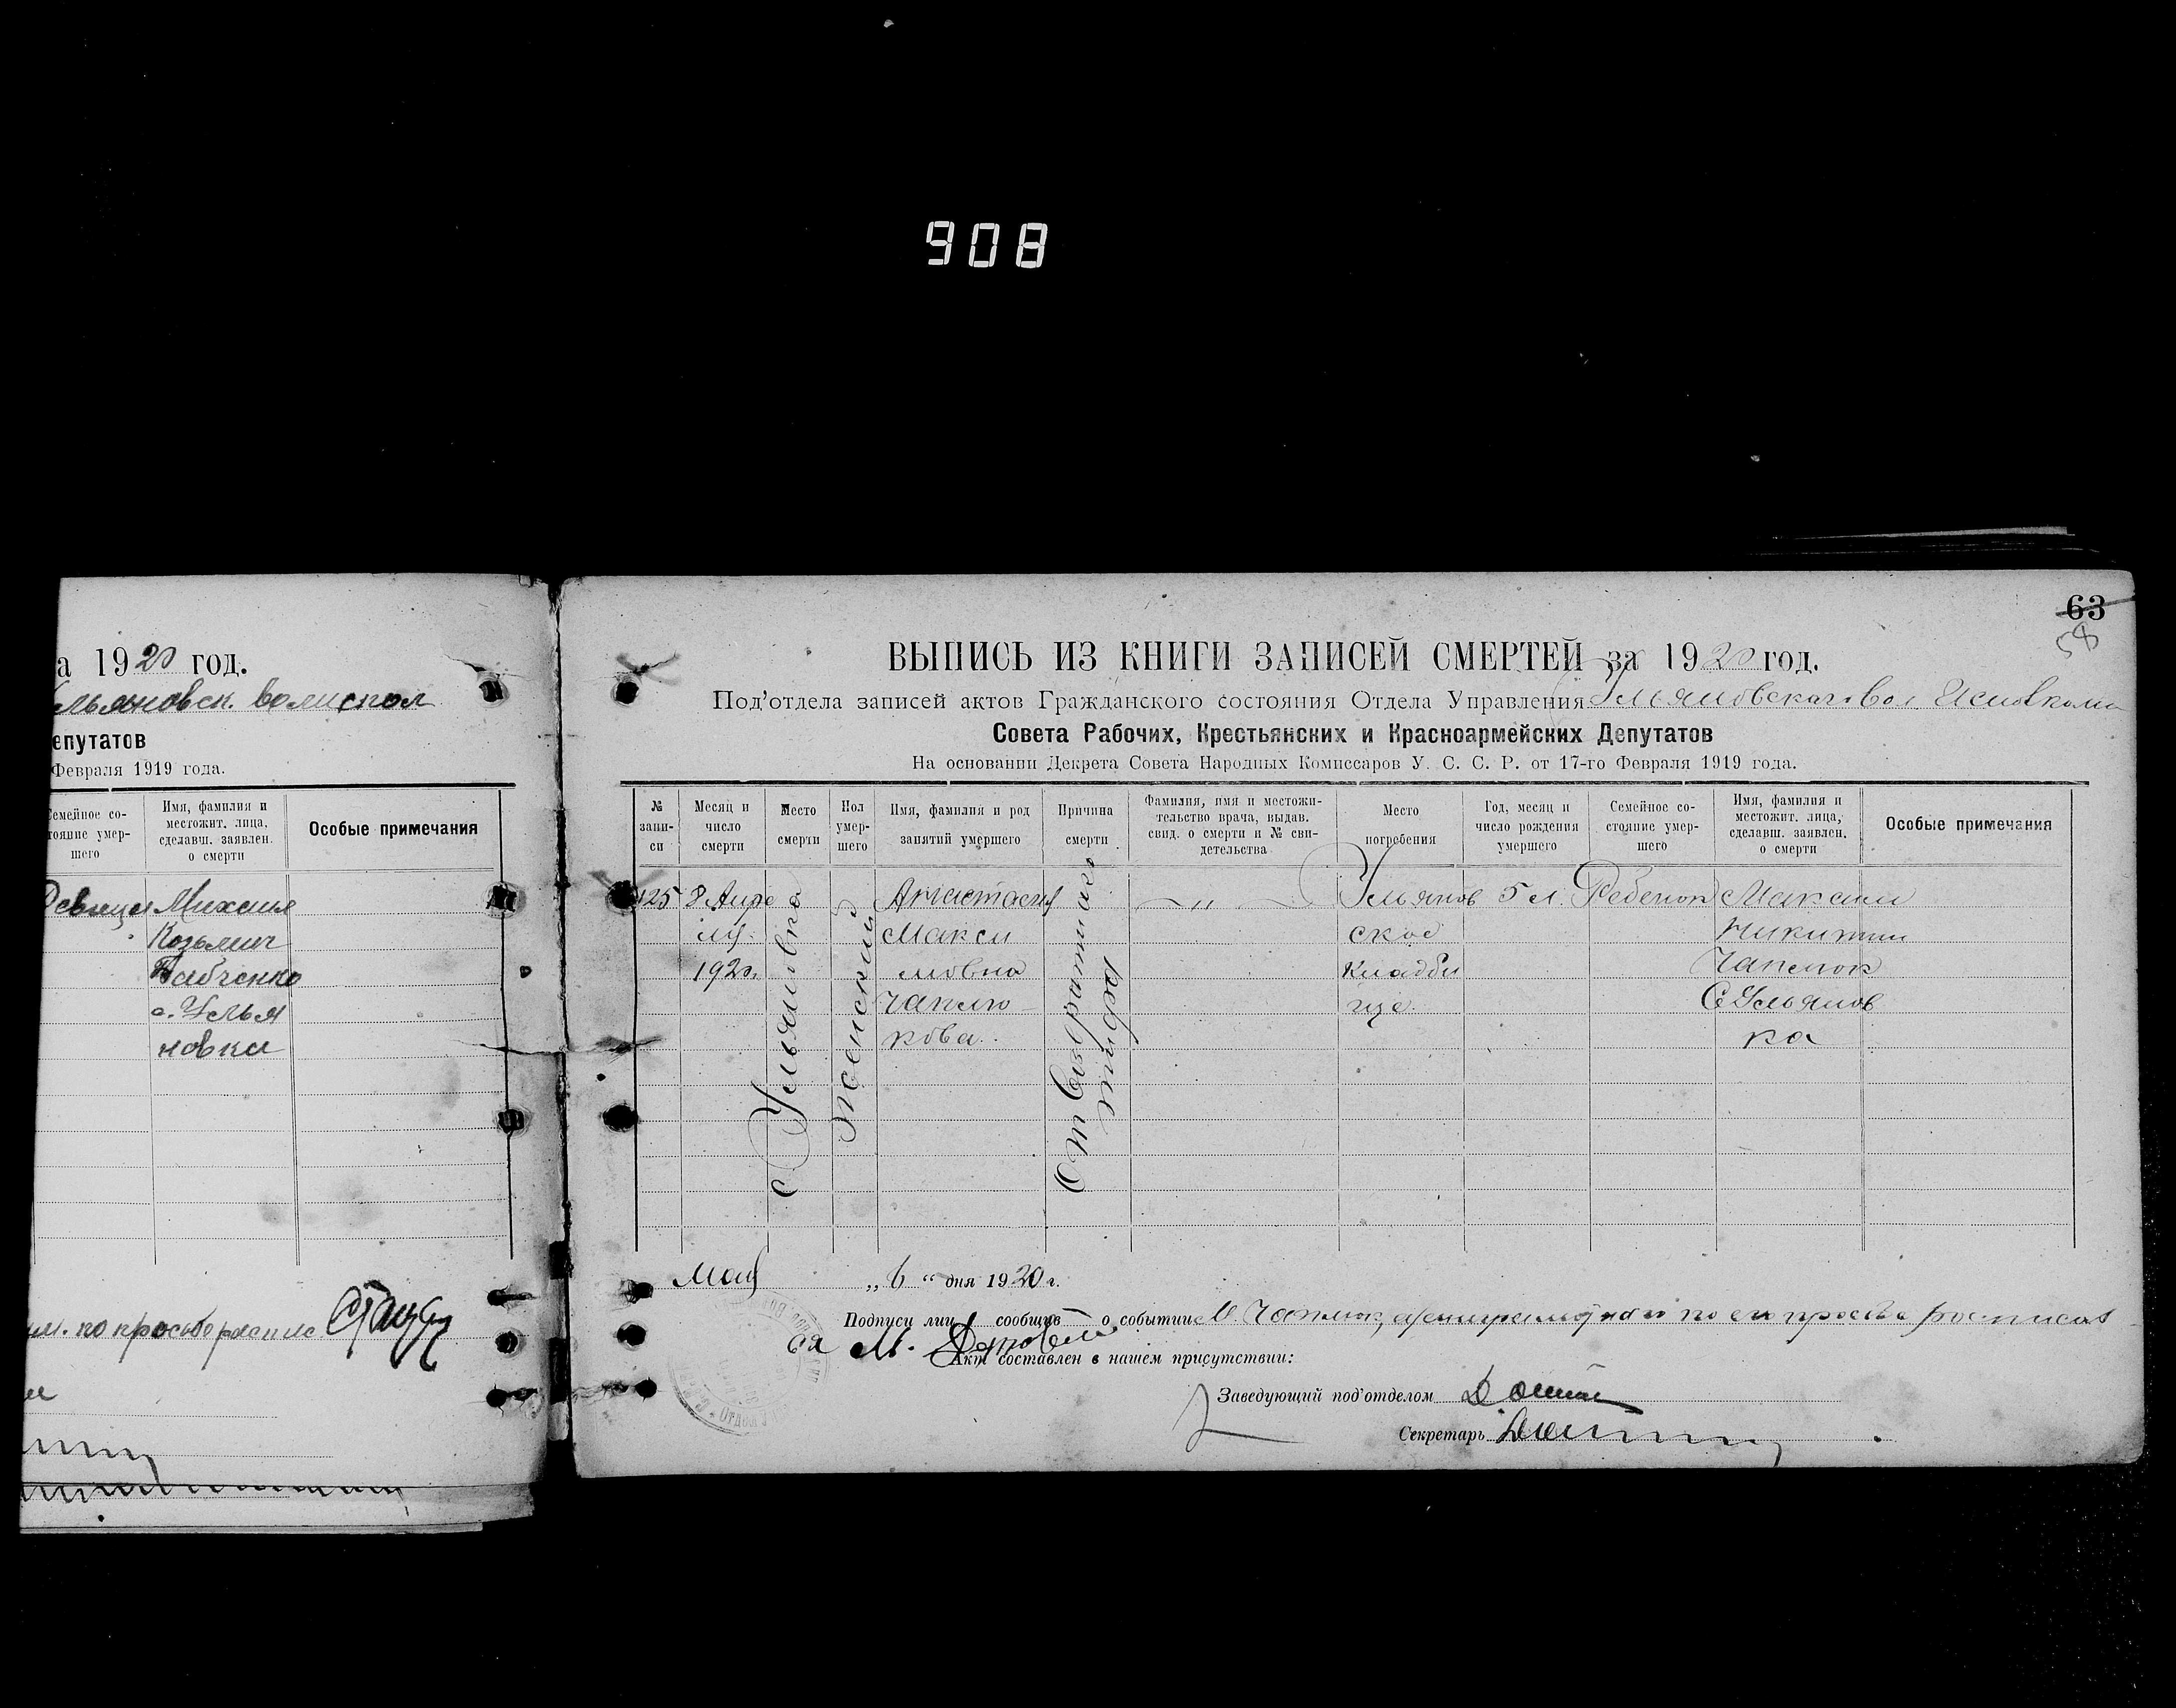 908
а 1920 год.
льяновск. волиспол
епутатов
Февраля 1919 года.
Семейное со-
тояние умер-
шего
Имя, фамилия и
местожит. лица,
сделавш. заявлен.
о смерти
Особые примечания
Девица Михаил
Козьмич
Бабченко
с. Улья
новка
по просьбе распис
63
58
ВЫПИСЬ ИЗ КНИГИ ЗАПИСЕЙ СМЕРТЕЙ за 1920 год.
Под'отдела записей актов Гражданского состояния Отдела Управления Ульяновскаго Вол Исполкома
Совета Рабочих, Крестьянских и Красноармейских Депутатов
На основании Декрета Совета Народных Комиссаров У. С. С. Р. от 17-го Февраля 1919 года.
№
запи-
си
Месяц и
число
смерти
Место
смерти
Пол
умер-
шего
Имя, фамилия и род
занятий умершего
Причина
смерти
Фамилия, имя и местожи-
тельство врача, выдав.
свид. о смерти и № сви-
детельства
Место
погребения
Год, месяц и
число рождения
умершего
Семейное со-
стояние умер-
шего
Имя, фамилия и
местожит. лица,
сделавш. заявлен.
о смерти
Особые примечания
125
8 Апре
ля
1920.
с Ульяновка
Женский
Анастасия
Макси
мовна
Чаплю
кова.
От Возвратнаго
тифа
— " —
Ульянов
ское
кладби
ще.
5 л.
Ребенок
Максим
Никитин
Чаплюк
С Ульянов
ка
Мая „6“ дня 1920 г.
Подписи лиц сообщив о событии М. Чаплюк, а неграмотна и по его просьбе росписал
ся М.
Акт составлен в нашем присутствии:
Заведующий под'отделом
Секретарь